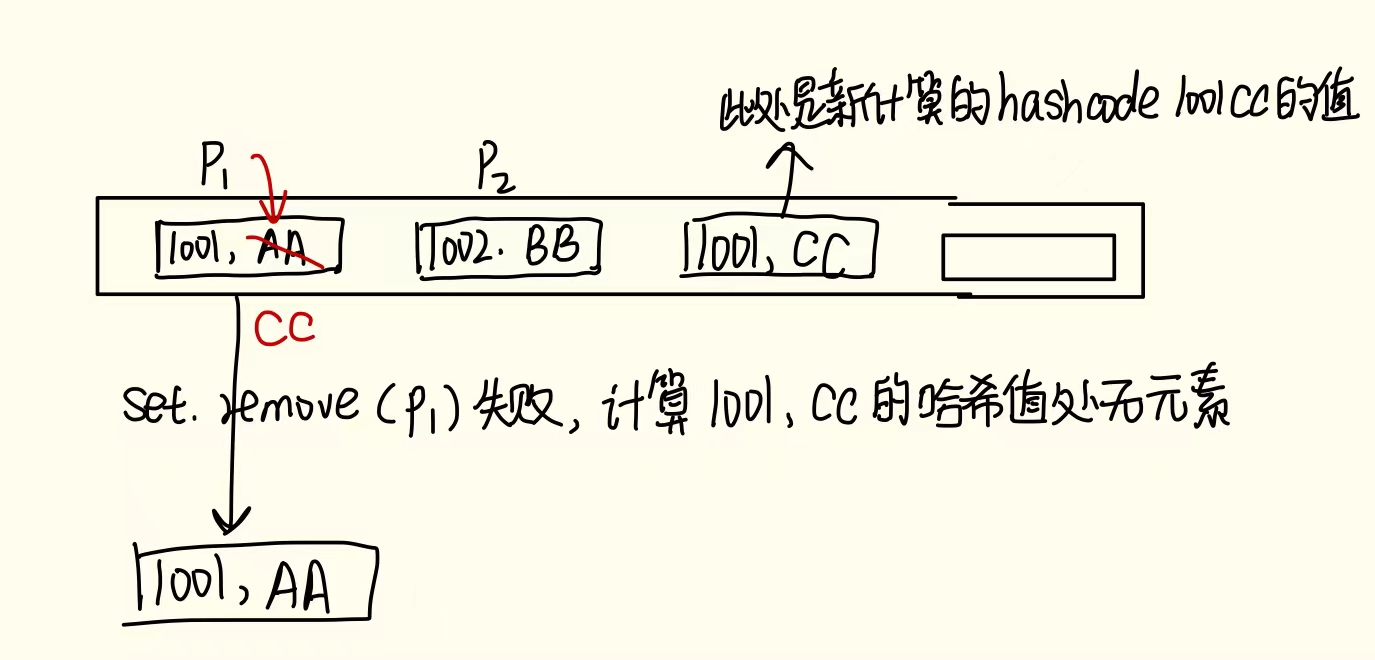 此处是新计算的hashcode 1001CC的值
P₁ P₂
1001, AA 1002. BB 1001, CC
CC
set. remove (P₁) 失败, 计算 1001, CC 的哈希值处无元素
1001, AA